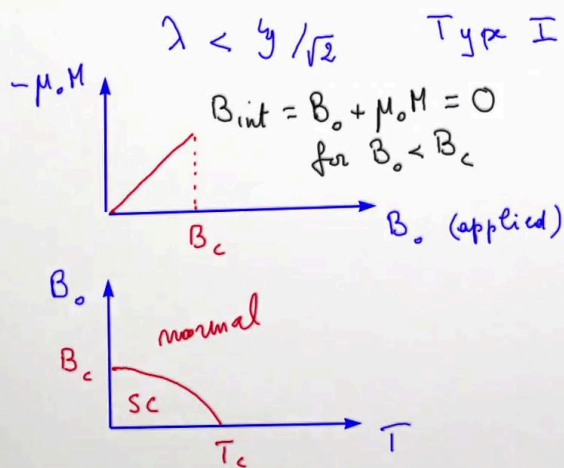 λ < ξ/√2 Type I
-μ₀M
B_int = B₀ + μ₀M = 0
for B₀ < B_c
B_c
B₀ (applied)
B₀
normal
B_c
SC
T_c
T